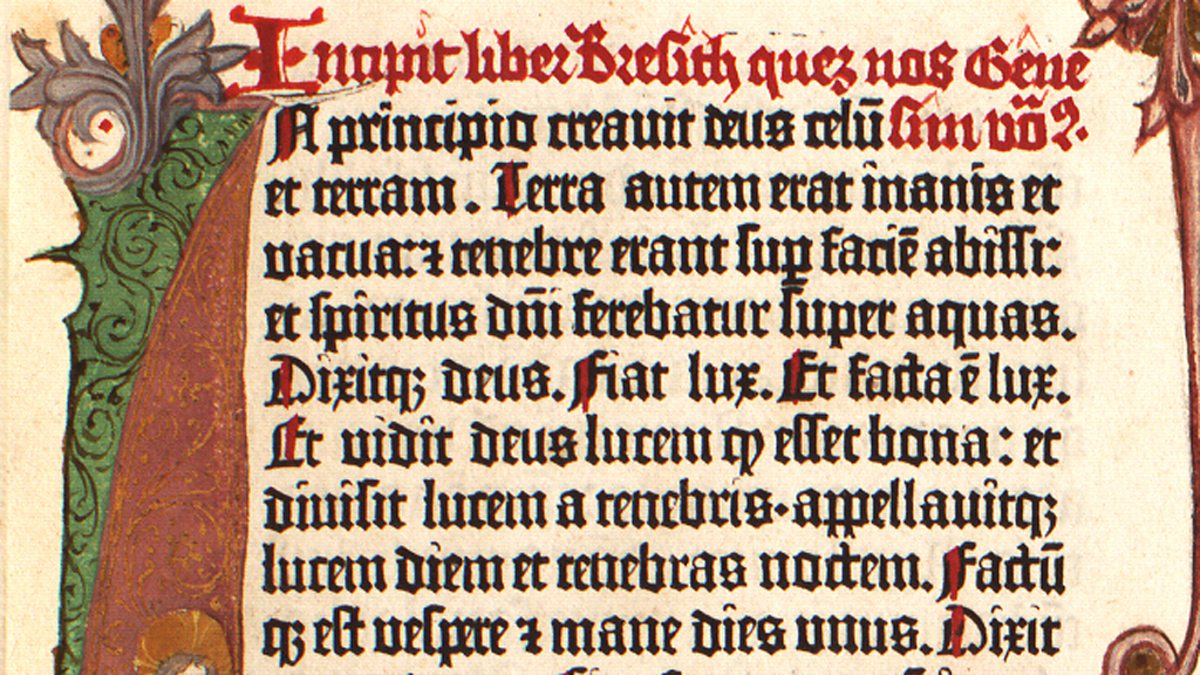 Incipit liber Bresith quez nos Gene
A principio creauit deus celū sim vōꝰ.
et terram. Terra autem erat inanis et
vacua: ⁊ tenebre erant sup faciē abissi:
et spiritus dn̄i ferebatur super aquas.
Dixitqꝫ deus. Fiat lux. Et facta ē lux.
Et vidit deus lucem ꝙ esset bona: et
diuisit lucem a tenebris. appellauitqꝫ
lucem diem et tenebras noctem. Factū
qꝫ est vespere ⁊ mane dies vnus. Dixit